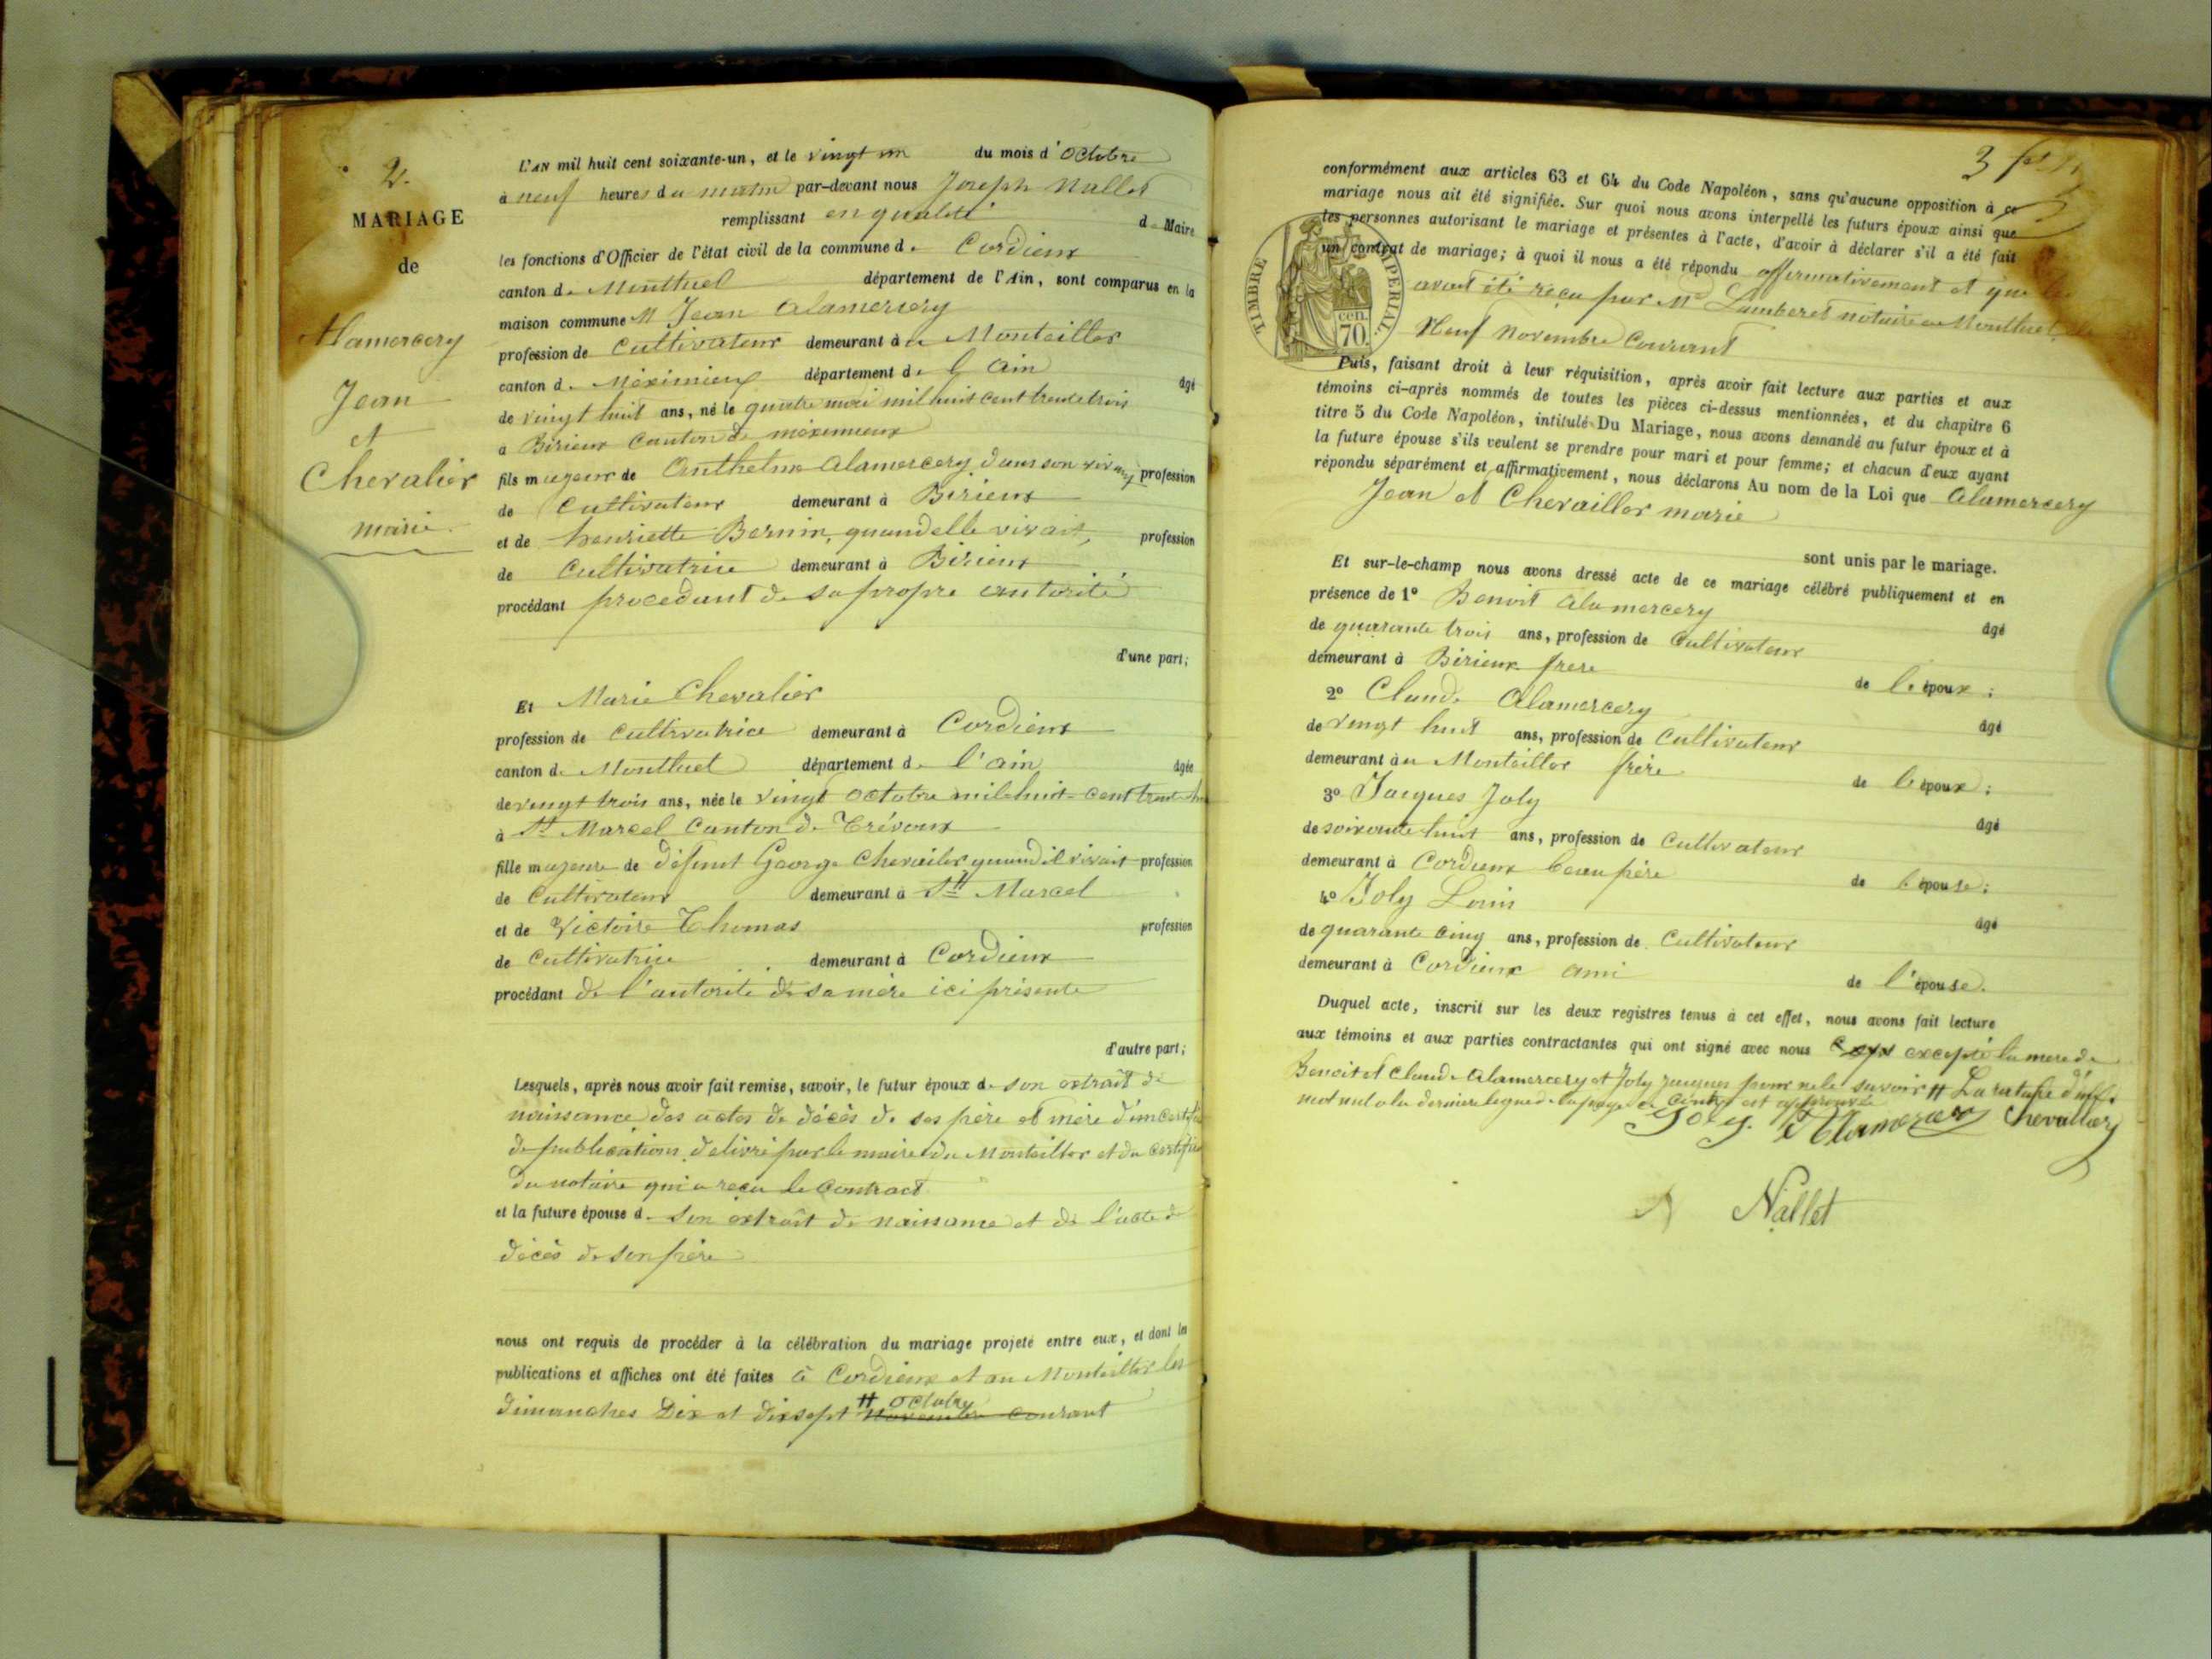 2.
MARIAGE
de
Alamercery
Jean
et
Chevalier
marie
L'AN mil huit cent soixante-un, et le vingt un du mois d'Octobre
à neuf heures du matin par-devant nous Joseph Nallet
remplissant en qualité de Maire
les fonctions d'Officier de l'état civil de la commune de Cordieux
canton de Montluel département de l'Ain, sont comparus en la
maison commune M Jean Alamercery
profession de Cultivateur demeurant à u Montellier
canton de Méximieux département de l'Ain âgé
de vingt huit ans, né le quatre mai mil huit cent trente trois
à Birieux Canton de méximieux
fils majeur de Anthelme Alamercery, dans son vivant profession
de Cultivateur demeurant à Birieux
et de henriette Bernin, quand elle vivait, profession
de Cultivatrice demeurant à Birieux
procédant procedant de sa propre autorité
d'une part;
Et Marie Chevalier
profession de Cultivatrice demeurant à Cordieux
canton de Montluel département de l'ain âgée
de vingt trois ans, née le vingt Octobre mil huit cent trente
à St Marcel Canton de Trévoux
fille majeure de défunt George Chevailer quand il vivait profession
de Cultivateur demeurant à St Marcel
et de Victoire Thomas profession
de Cultivatrice demeurant à Cordieux
procédant de l'autorité de sa mère ici présente
d'autre part;
Lesquels, après nous avoir fait remise, savoir, le futur époux de son extrait de
naissance des actes de décès de ses père et mère d'un certificat
de publications délivré par le maire du Montellier et du certificat
du notaire qui a reçu le Contract
et la future épouse de son extrait de naissance et de l'acte de
décès de son père
nous ont requis de procéder à la célébration du mariage projeté entre eux, et dont les
publications et affiches ont été faites à Cordieux et au Montellier les
# octobre
dimanches Dix et dixsept Novembre courant
conformément aux articles 63 et 64 du Code Napoléon, sans qu'aucune opposition à ce
mariage nous ait été signifiée. Sur quoi nous avons interpellé les futurs époux ainsi que
les personnes autorisant le mariage et présentes à l'acte, d'avoir à déclarer s'il a été fait
un contrat de mariage; à quoi il nous a été répondu affirmativement et que
avait été reçu par Me Lamberet notaire à Montluel
Neuf Novembre Courant
TIMBRE IMPERIAL
70 cen.
Puis, faisant droit à leur réquisition, après avoir fait lecture aux parties et aux
témoins ci-après nommés de toutes les pièces ci-dessus mentionnées, et du chapitre 6
titre 5 du Code Napoléon, intitulé Du Mariage, nous avons demandé au futur époux et à
la future épouse s'ils veulent se prendre pour mari et pour femme; et chacun d'eux ayant
répondu séparément et affirmativement, nous déclarons Au nom de la Loi que Alamercery
Jean et Chevailler marie
sont unis par le mariage.
Et sur-le-champ nous avons dressé acte de ce mariage célébré publiquement et en
présence de 1° Benoit Alamercery âgé
de quarante trois ans, profession de Cultivateur
demeurant à Birieux frere de l'époux;
2° Claude Alamercery âgé
de vingt huit ans, profession de Cultivateur
demeurant à u Montellier frère de l'époux;
3° Jacques Joly âgé
de soixante huit ans, profession de Cultivateur
demeurant à Cordieux beau père de l'épouse;
4° Joly Louis âgé
de quarante cinq ans, profession de Cultivateur
demeurant à Cordieux ami de l'épouse.
Duquel acte, inscrit sur les deux registres tenus à cet effet, nous avons fait lecture
aux témoins et aux parties contractantes qui ont signé avec nous excepté la mere de
Benoit et Claude Alamercery et Joly Jacques pour ne le savoir # La rature d'un
mot nul a la derniere ligne de la page ci Contre est approuvée
Joly. Alamercery Chevallier
Nallet